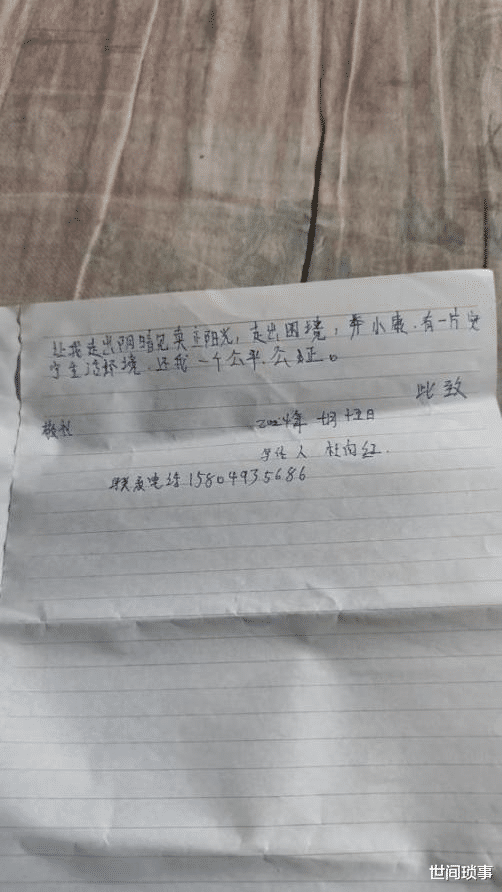 让我走出阴暗见真正阳光,走出困境,奔小康.有一片安
宁生活环境.还我一个公平.公正。
此致
敬礼
2024年 十月 十五日
人 杜向红.
联系电话15804935686
世间琐事